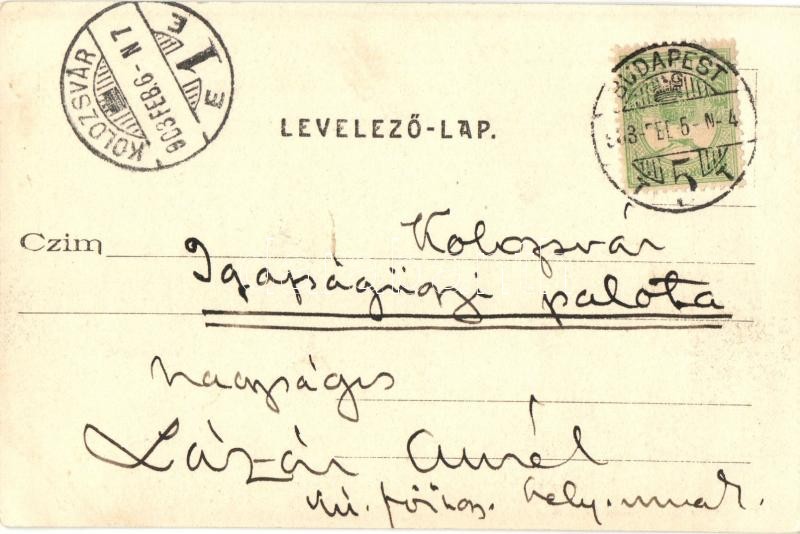 KOLOZSVÁR
903 FEB. 6 - N 7
E 1 E
BUDAPEST
903 FEB. 5 - N 4
5
T T
LEVELEZŐ-LAP.
Czim
Kolozsvár
Igazságügyi palota
nagyságos
Lázár Aurél